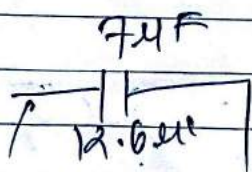 7μF
12.6μ